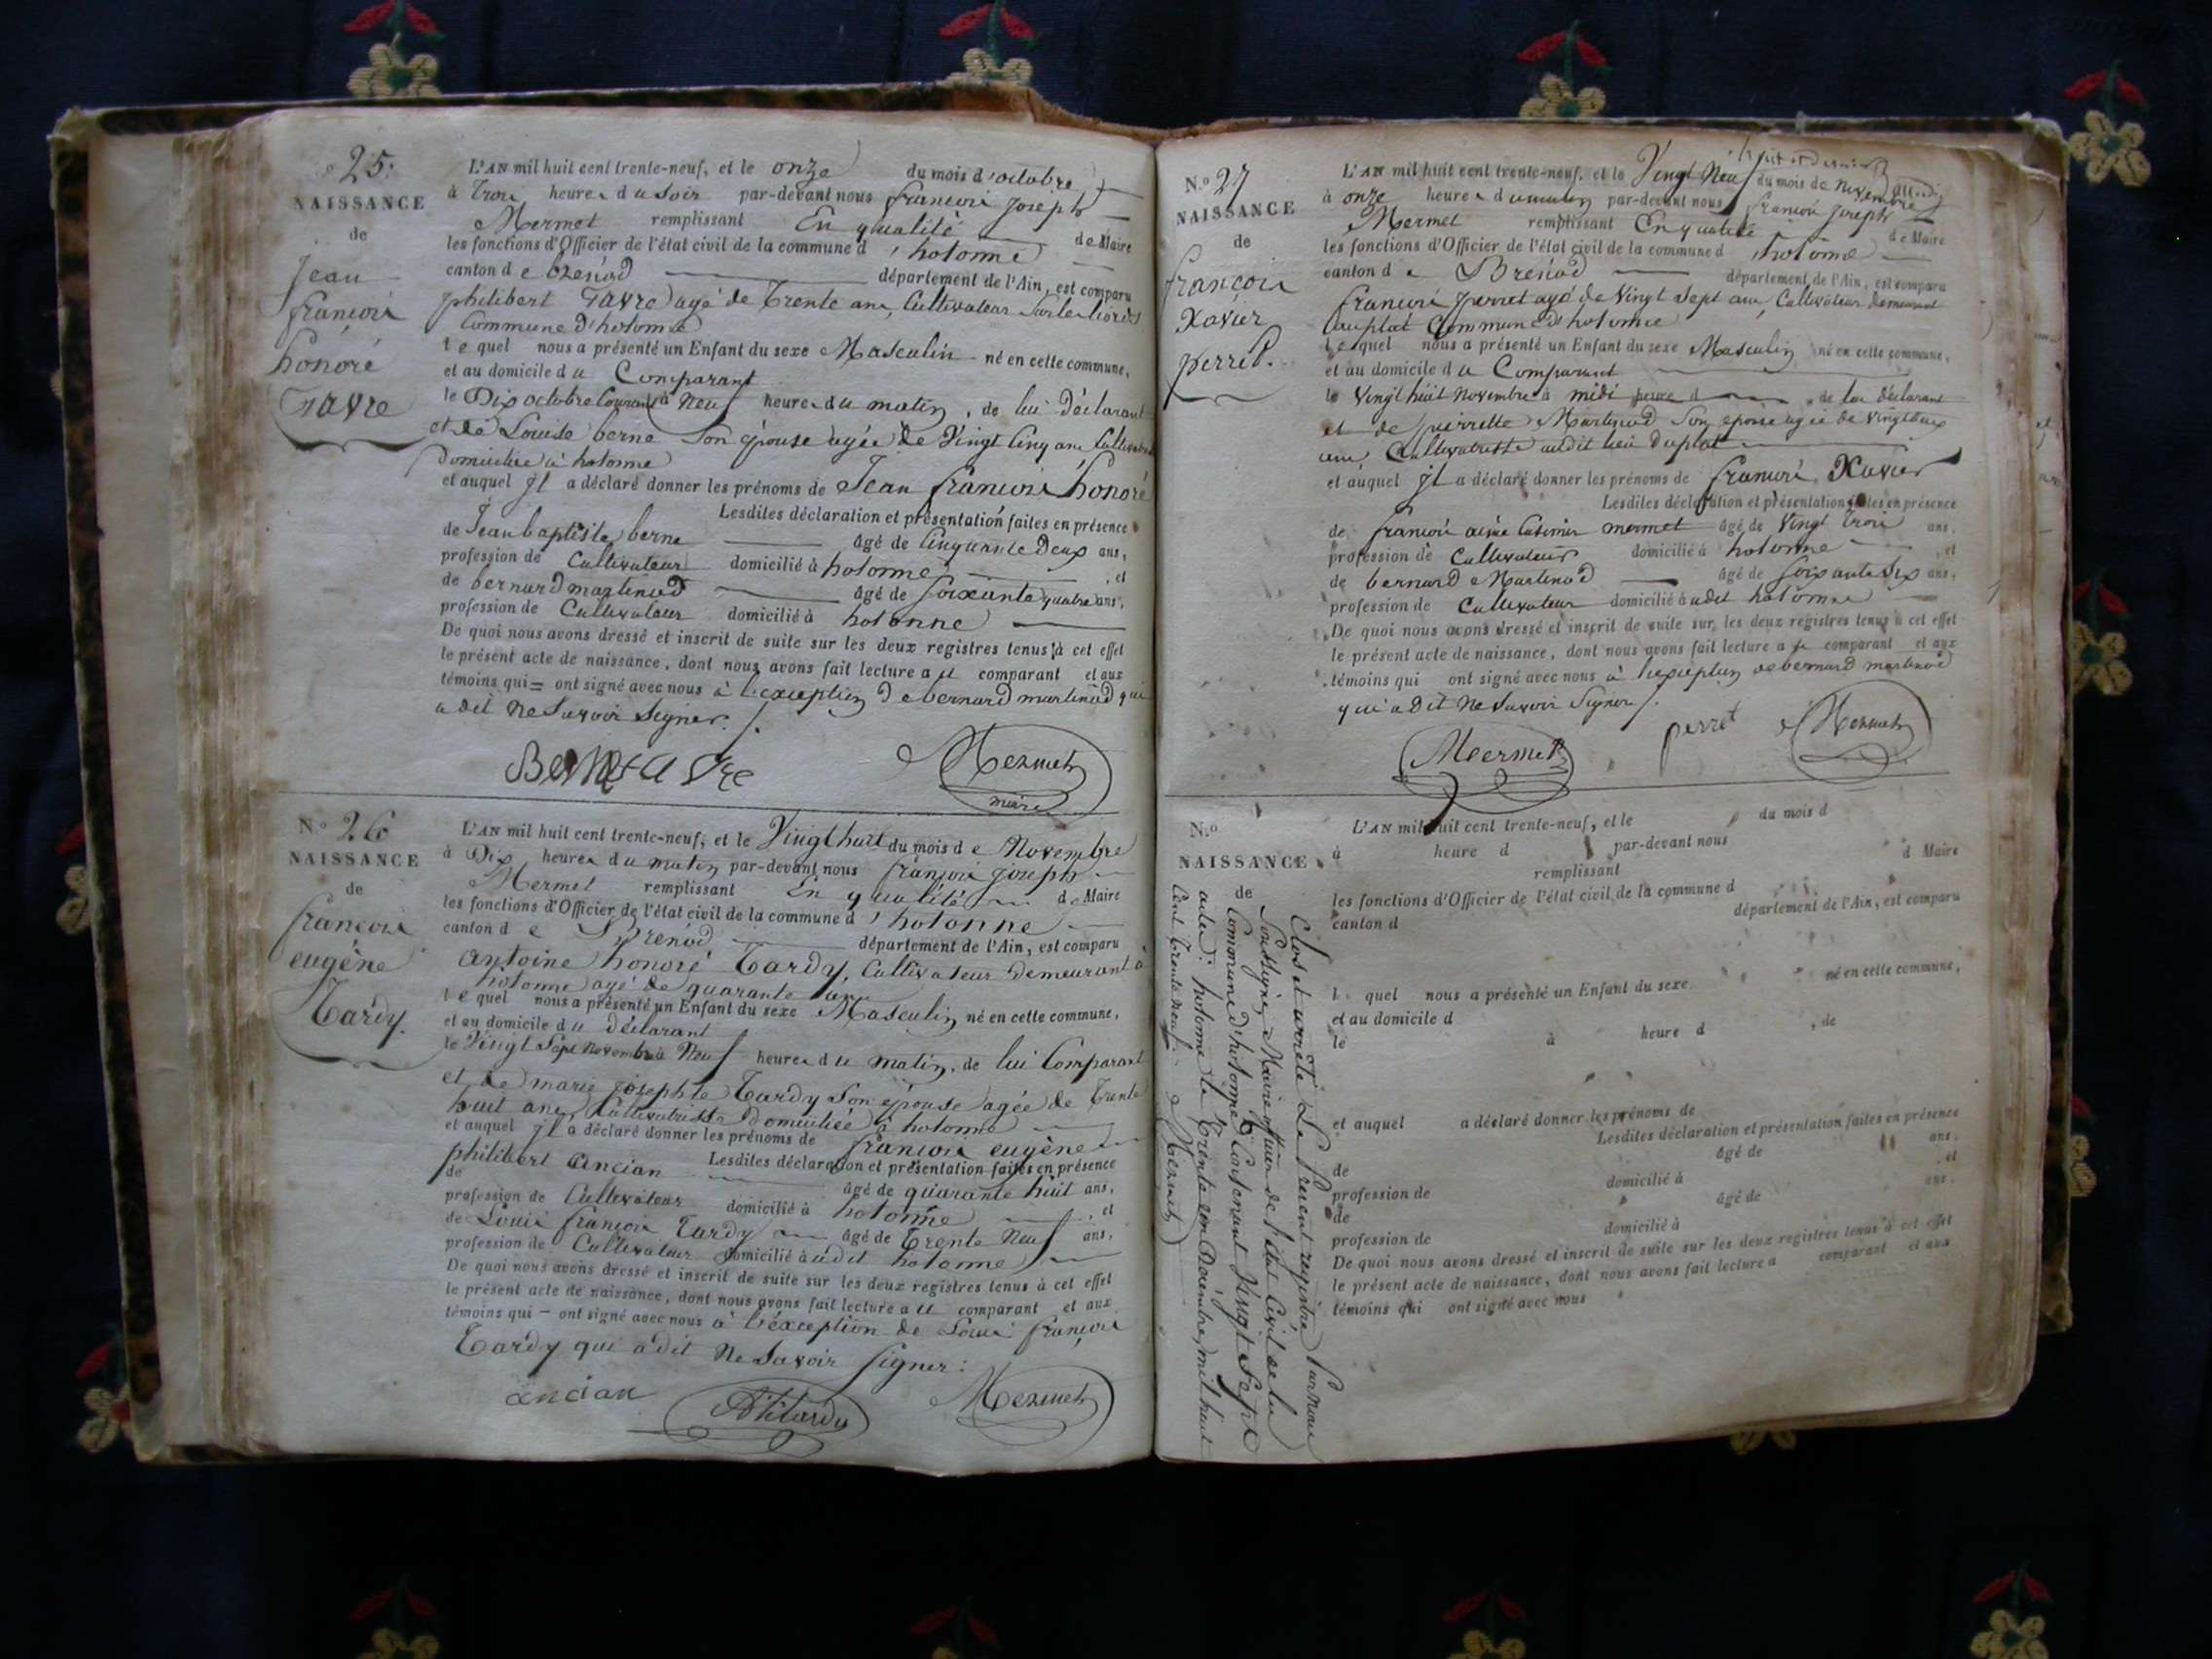 25.
NAISSANCE
de
Jean
françois
honoré
Favre
L'AN mil huit cent trente-neuf, et le onze du mois d'octobre
à trois heures du soir par-devant nous françois joseph
Mermet remplissant En qualité de Maire
les fonctions d'Officier de l'état civil de la commune d'hotonne
canton de brénod département de l'Ain, est comparu
philibert Favre agé de trente ans, Cultivateur
Commune d'hotonne
lequel nous a présenté un Enfant du sexe Masculin né en cette commune,
et au domicile du Comparant
le Dix octobre Courant à Neuf heures du matin, de lui Déclarant
et de Louise berne Son épouse agée de Vingt Cinq ans
Domiciliée à hotonne
et auquel il a déclaré donner les prénoms de Jean françois honoré
Lesdites déclaration et présentation faites en présence
de Jean baptiste berne âgé de Cinquante Deux ans,
profession de Cultivateur domicilié à hotonne, et
de bernard martinod âgé de Soixante quatre ans,
profession de Cultivateur domicilié à hotonne
De quoi nous avons dressé et inscrit de suite sur les deux registres tenus à cet effet
le présent acte de naissance, dont nous avons fait lecture au comparant et aux
témoins qui = ont signé avec nous à l'exception de bernard martinod qui
a dit Ne Savoir Signer.
Mermet
maire
N.o 26
NAISSANCE
de
françois
eugène
Tardy.
L'AN mil huit cent trente-neuf, et le Vingt huit du mois de Novembre
à Dix heures du matin par-devant nous françois joseph
Mermet remplissant En qualité de Maire
les fonctions d'Officier de l'état civil de la commune d'hotonne
canton de Brénod département de l'Ain, est comparu
Antoine honoré Tardy, Cultivateur Demeurant à
hotonne agé de quarante
lequel nous a présenté un Enfant du sexe Masculin né en cette commune,
et au domicile du déclarant
le Vingt Sept Novembre à Neuf heures du matin, de lui Comparant
et de marie josephte Tardy Son épouse agée de Trente
huit ans, Cultivatrice Domiciliée à hotonne
et auquel il a déclaré donner les prénoms de françois eugène
Lesdites déclaration et présentation faites en présence
de philibert Ancian âgé de quarante huit ans,
profession de Cultivateur domicilié à hotonne, et
de Louis françois Tardy âgé de Trente Neuf ans,
profession de Cultivateur domicilié à udit hotonne
De quoi nous avons dressé et inscrit de suite sur les deux registres tenus à cet effet
le présent acte de naissance, dont nous avons fait lecture au comparant et aux
témoins qui – ont signé avec nous à l'exception de Louis françois
Tardy qui a dit Ne Savoir Signer :
ancian Mermet
N.o 27
NAISSANCE
de
françois
Xavier
perret.
L'AN mil huit cent trente-neuf, et le Vingt Neuf du mois de Novembre
à onze heures du matin par-devant nous françois joseph
Mermet remplissant En qualité de Maire
les fonctions d'Officier de l'état civil de la commune d'hotonne
canton de Brénod département de l'Ain, est comparu
françois perret agé de Vingt Sept ans, Cultivateur Demeurant
au plat Commune d'hotonne
lequel nous a présenté un Enfant du sexe Masculin né en cette commune,
et au domicile du Comparant
le Vingt huit Novembre à midi heure d , de lui déclarant
et de pierrette Martinod Son épouse agée de Vingt deux
ans, Cultivatrice audit lieu Du plat
et auquel il a déclaré donner les prénoms de françois Xavier
Lesdites déclaration et présentation faites en présence
de françois aimé Casimir mermet âgé de Vingt Trois ans,
profession de Cultivateur domicilié à hotonne, et
de bernard Martinod âgé de Soixante Six ans,
profession de Cultivateur domicilié à udit hotonne
De quoi nous avons dressé et inscrit de suite sur les deux registres tenus à cet effet
le présent acte de naissance, dont nous avons fait lecture au comparant et aux
témoins qui ont signé avec nous à l'exception de bernard martinod
qui a dit Ne Savoir Signer.
Mermet perret Mermet
N.o
NAISSANCE
de
L'AN mil huit cent trente-neuf, et le du mois d
à heure d par-devant nous
remplissant d Maire
les fonctions d'Officier de l'état civil de la commune d
canton d département de l'Ain, est comparu
l quel nous a présenté un Enfant du sexe né en cette commune,
et au domicile d
le à heure d , de
et auquel a déclaré donner les prénoms de
Lesdites déclaration et présentation faites en présence
de âgé de ans,
profession de domicilié à , et
de âgé de ans,
profession de domicilié à
De quoi nous avons dressé et inscrit de suite sur les deux registres tenus à cet effet
le présent acte de naissance, dont nous avons fait lecture a comparant et aux
témoins qui ont signé avec nous
Clos et arrêté Le Présent registre Par nous
Soussigné Maire officier de l'état Civil de la
Commune d'hotonne Contenant Vingt Sept
actes. hotonne le Trente un Décembre mil huit
Cent Trente neuf. Mermet